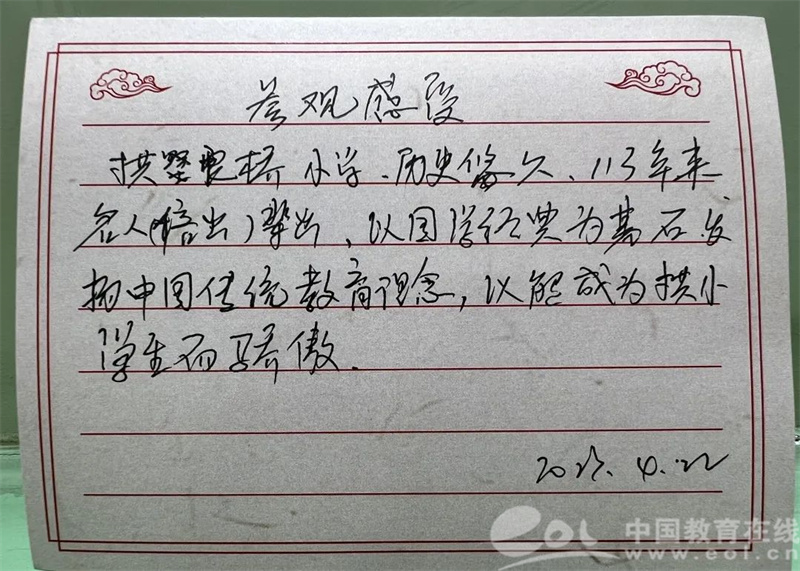 参观感受
拱墅 桥小学、历史悠久、113年来
名人(倍出)辈出、以国学经典为基石发
扬中国传统教育理念,以能成为拱小
学生而骄傲.
4.22
eol 中国教育在线
www.eol.cn